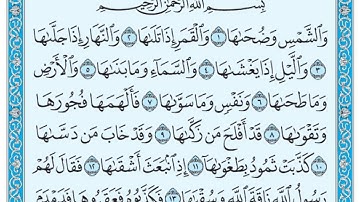 بِسْمِ اللَّهِ الرَّحْمَٰنِ الرَّحِيمِ
وَالشَّمْسِ وَضُحَىٰهَا ١ وَالْقَمَرِ إِذَا تَلَىٰهَا ٢ وَالنَّهَارِ إِذَا جَلَّىٰهَا
٣ وَاللَّيْلِ إِذَا يَغْشَىٰهَا ٤ وَالسَّمَاءِ وَمَا بَنَىٰهَا ٥ وَالْأَرْضِ
وَمَا طَحَىٰهَا ٦ وَنَفْسٍ وَمَا سَوَّىٰهَا ٧ فَأَلْهَمَهَا فُجُورَهَا
وَتَقْوَىٰهَا ٨ قَدْ أَفْلَحَ مَن زَكَّىٰهَا ٩ وَقَدْ خَابَ مَن دَسَّىٰهَا
١٠ كَذَّبَتْ ثَمُودُ بِطَغْوَىٰهَا ١١ إِذِ انبَعَثَ أَشْقَىٰهَا ١٢ فَقَالَ لَهُمْ
رَسُولُ اللَّهِ نَاقَةَ اللَّهِ وَسُقْيَٰهَا ١٣ فَكَذَّبُوهُ فَعَقَرُوهَا فَدَمْدَمَ